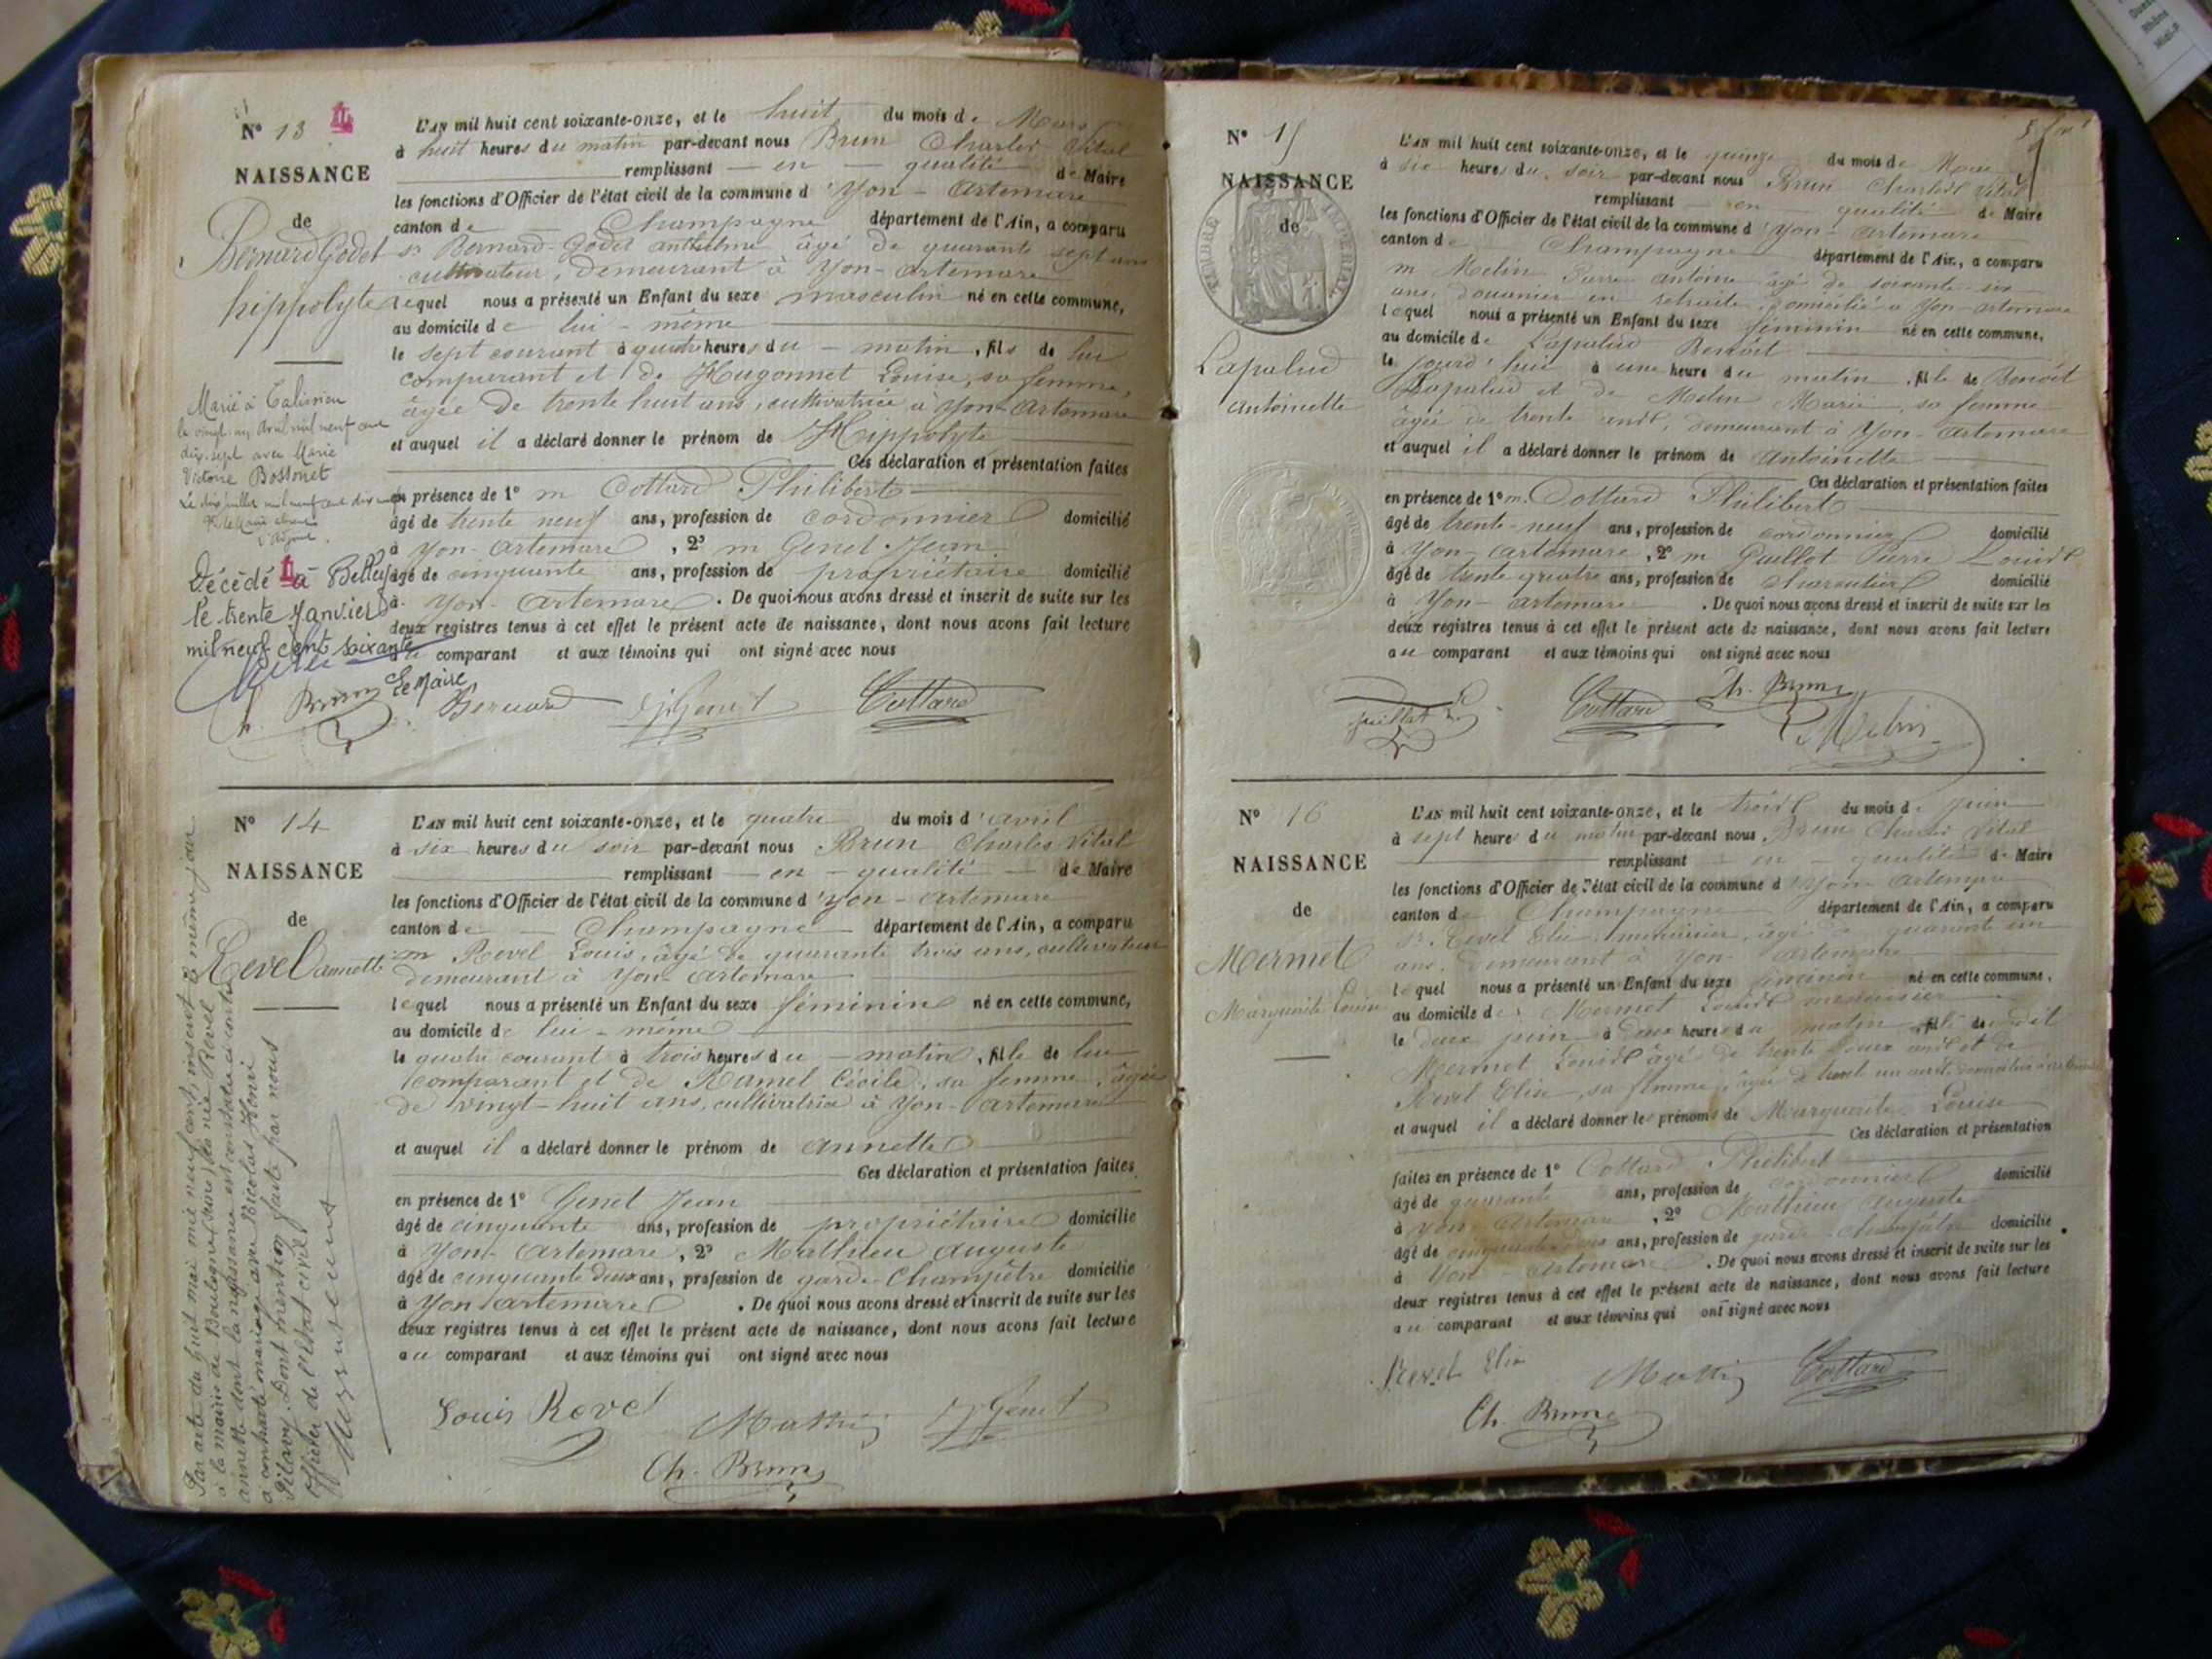 N° 13
NAISSANCE
de
Bernard Godet
hippolyte
Marié à Talissieu
le vingt un Avril mil neuf cent
dix-sept avec Marie
Victoire Bossonet
Le dix juillet mil neuf cent dix
Décédé à Belley
le trente Janvier
mil neuf cent soixante
Le Maire
L'AN mil huit cent soixante-onze, et le huit du mois de Mars
à huit heures du matin par-devant nous Brun Charles Vital
remplissant en qualité de Maire
les fonctions d'Officier de l'état civil de la commune d'Yon-Artemare
canton de Champagne département de l'Ain, a comparu
sr Bernard-Godet anthelme âgé de quarante sept ans
cultivateur, demeurant à Yon-Artemare
lequel nous a présenté un Enfant du sexe masculin né en cette commune,
au domicile de lui-même
le sept courant à quatre heures du matin, fils de lui
comparant et de Hugonnet Louise, sa femme,
âgée de trente huit ans, cultivatrice à Yon-Artemare
et auquel il a déclaré donner le prénom de Hippolyte
Ces déclaration et présentation faites
en présence de 1° m Cottard Philibert
âgé de trente neuf ans, profession de cordonnier domicilié
à Yon-Artemare, 2° m Genet Jean
âgé de cinquante ans, profession de propriétaire domicilié
à Yon-Artemare. De quoi nous avons dressé et inscrit de suite sur les
deux registres tenus à cet effet le présent acte de naissance, dont nous avons fait lecture
au comparant et aux témoins qui ont signé avec nous
Ch. Brun Bernard J Genet Cottard
N° 14
NAISSANCE
de
Revel annette
Par acte du huit mai mil neuf cent, inscrit le même jour
à la mairie de Boulogne (Seine), la née Revel
annette dont la naissance est constatée ci-contre
a contracté mariage avec Nicolas Henri
Pilavy. Dont mention faite par nous
Officier de l'état civil
L'AN mil huit cent soixante-onze, et le quatre du mois d'avril
à six heures du soir par-devant nous Brun Charles Vital
remplissant en qualité de Maire
les fonctions d'Officier de l'état civil de la commune d'Yon-Artemare
canton de Champagne département de l'Ain, a comparu
m Revel Louis, âgé de quarante trois ans, cultivateur
demeurant à Yon-Artemare
lequel nous a présenté un Enfant du sexe féminin né en cette commune,
au domicile de lui-même
le quatre courant à trois heures du matin, fille de lui
comparant et de Ramel Cécile, sa femme, âgée
de vingt-huit ans, cultivatrice à Yon-Artemare
et auquel il a déclaré donner le prénom de annette
Ces déclaration et présentation faites
en présence de 1° Genet Jean
âgé de cinquante ans, profession de propriétaire domicilié
à Yon-Artemare, 2° Mathieu Auguste
âgé de cinquante deux ans, profession de garde-Champêtre domicilié
à Yon Artemare. De quoi nous avons dressé et inscrit de suite sur les
deux registres tenus à cet effet le présent acte de naissance, dont nous avons fait lecture
au comparant et aux témoins qui ont signé avec nous
Louis Revel J Genet
Ch. Brun
N° 15
NAISSANCE
de
TIMBRE IMPERIAL
Lapalud
Antoinette
L'AN mil huit cent soixante-onze, et le quinze du mois de
à six heures du soir par-devant nous Brun Charles Vital
remplissant en qualité de Maire
les fonctions d'Officier de l'état civil de la commune d'Yon-Artemare
canton de Champagne département de l'Ain, a comparu
m Melin Pierre Antoine âgé de soixante six
ans, douanier en retraite domicilié à Yon-Artemare
lequel nous a présenté un Enfant du sexe féminin né en cette commune,
au domicile de Lapalud Benoît
le jourd'hui à une heure du matin, fille de Benoît
Lapalud et de Melin Marie, sa femme
âgée de trente ans, demeurant à Yon-Artemare
et auquel il a déclaré donner le prénom de Antoinette
Ces déclaration et présentation faites
en présence de 1° m. Cottard Philibert
âgé de trente-neuf ans, profession de cordonnier domicilié
à Yon-Artemare, 2° m Guillot Pierre Louis
âgé de trente quatre ans, profession de domicilié
à Yon-Artemare. De quoi nous avons dressé et inscrit de suite sur les
deux registres tenus à cet effet le présent acte de naissance, dont nous avons fait lecture
au comparant et aux témoins qui ont signé avec nous
Guillot Cottard Ch. Brun
Melin
N° 16
NAISSANCE
de
Mermet
Marguerite Louise
L'AN mil huit cent soixante-onze, et le trois du mois de juin
à sept heures du matin par-devant nous Brun Charles Vital
remplissant en qualité de Maire
les fonctions d'Officier de l'état civil de la commune d'Yon-Artemare
canton de Champagne département de l'Ain, a comparu
sr. Revel Elie, menuisier, âgé de quarante un
ans, demeurant à Yon-Artemare
lequel nous a présenté un Enfant du sexe féminin né en cette commune,
au domicile de Mermet Louis menuisier
le deux juin à deux heures du matin, fille de dit
Mermet Louis âgé de trente deux ans et de
Revel Elise, sa femme, âgée de trente un ans
et auquel il a déclaré donner les prénoms de Marguerite Louise
Ces déclaration et présentation
faites en présence de 1° Cottard Philibert
âgé de quarante ans, profession de cordonnier domicilié
à Yon-Artemare, 2° Mathieu Auguste
âgé de cinquante deux ans, profession de garde-champêtre domicilié
à Yon-Artemare. De quoi nous avons dressé et inscrit de suite sur les
deux registres tenus à cet effet le présent acte de naissance, dont nous avons fait lecture
au comparant et aux témoins qui ont signé avec nous
Revel Elie Cottard
Ch. Brun